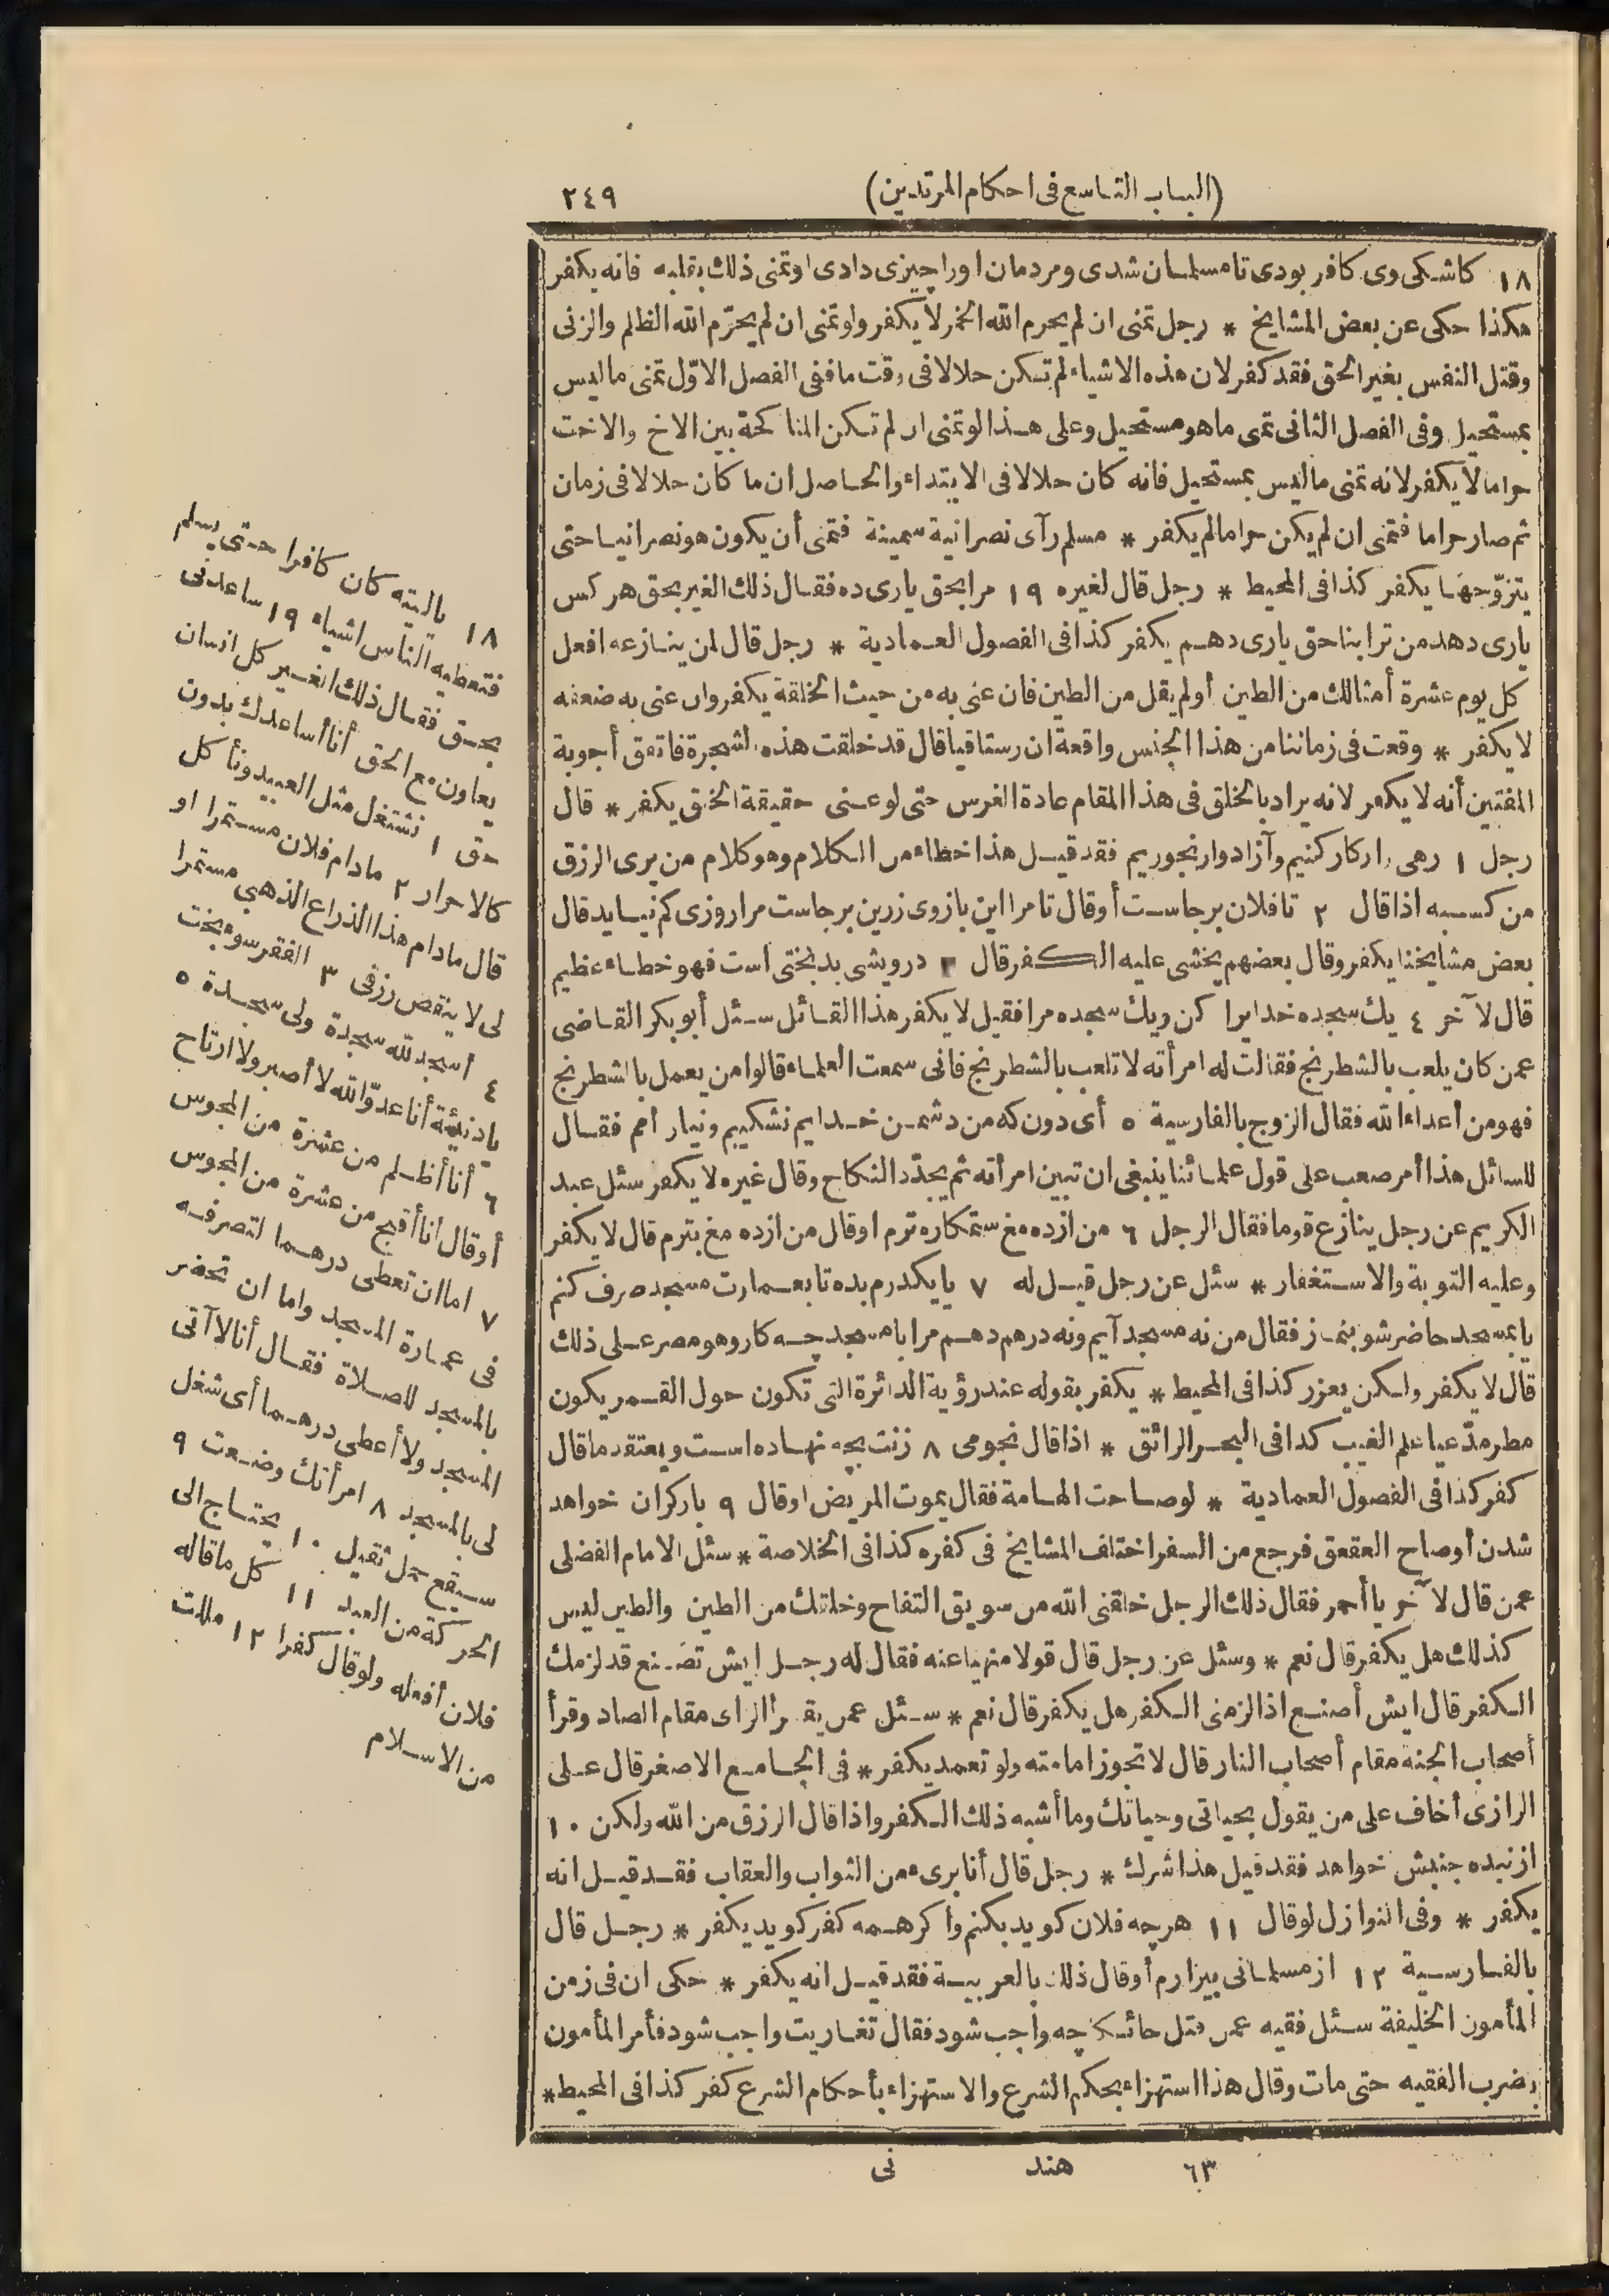 (الباب التاسع فى احكام المرتدين)
٢٤٩
١٨ كاشكى وى كافر بودى تا مسلمان شدى ومردمان اورا چيزى دادى اوتمنى ذلك بقلبه فانه يكفر
هكذا حكى عن بعض المشايخ * رجل تمنى ان لم يحرم الله الخمر لا يكفر ولوتمنى ان لم يحرّم الله الظلم والزنى
وقتل النفس بغير الحق فقد كفر لان هذه الاشياء لم تكن حلالا فى وقت ما ففى الفصل الاوّل تمنى ما ليس
بمستحيل وفى الفصل الثانى تمنى ما هو مستحيل وعلى هذا لو تمنى ان لم تكن المناكحة بين الاخ والاخت
حراما لا يكفر لانه تمنى ما ليس بمستحيل فانه كان حلالا فى الابتداء والحاصل ان ما كان حلالا فى زمان
ثم صار حراما فتمنى ان لم يكن حراما لم يكفر * مسلم رآى نصرانية سمينة فتمنى أن يكون هو نصرانيا حتى
يتزوّجها يكفر كذا فى المحيط * رجل قال لغيره ١٩ مرا بحق يارى ده فقال ذلك الغير بحق هر كس
يارى دهد من ترا بنا حق يارى دهم يكفر كذا فى الفصول العمادية * رجل قال لمن ينازعه افعل
كل يوم عشرة أمثالك من الطين أولم يقل من الطين فان عنى به من حيث الخلقة يكفر وان عنى به ضعفه
لا يكفر * وقعت فى زماننا من هذا الجنس واقعة ان رستاقيا قال قد خلقت هذه الشجرة فاتفق أجوبة
المفتين أنه لا يكفر لانه يراد بالخلق فى هذا المقام عادة الغرس حتى لو عنى حقيقة الخلق يكفر * قال
رجل ١ رهى وار كار كنيم وآزاد وار بخوريم فقد قيل هذا خطاء من الكلام وهو كلام من يرى الرزق
من كسبه اذا قال ٢ تا فلان برجاست أوقال تا مرا اين بازوى زرين برجاست مرا روزى كم نيايد قال
بعض مشايخنا يكفر وقال بعضهم يخشى عليه الكفر قال درويشى بدبختى است فهو خطاء عظيم
قال لآخر ٤ يك سجده خدايرا كن ويك سجده مرا فقيل لا يكفر هذا القائل سئل أبو بكر القاضى
عمن كان يلعب بالشطرنج فقالت له امرأته لا تلعب بالشطرنج فانى سمعت العلماء قالوا من يعمل بالشطرنج
فهو من أعداء الله فقال الزوج بالفارسية ٥ أى دون كه من دشمن خدايم نشكيبم ونيارامم فقال
للسائل هذا أمر صعب على قول علمائنا ينبغى ان تبين امرأته ثم يجدّد النكاح وقال غيره لا يكفر سئل عبد
الكريم عن رجل ينازع قوما فقال الرجل ٦ من ازده مغ ستمكاره ترم اوقال من ازده مغ بترم قال لا يكفر
وعليه التوبة والاستغفار * سئل عن رجل قيل له ٧ يا يكدرم بده تا بعمارت مسجد صرف كنم
يا بمسجد حاضر شو بنماز فقال من نه مسجد آيم ونه درهم دهم مرا با مسجد چه كار وهو مصر على ذلك
قال لا يكفر ولكن يعزر كذا فى المحيط * يكفر بقوله عند رؤية الدائرة التى تكون حول القمر يكون
مطر مدّعيا علم الغيب كذا فى البحر الرائق * اذا قال نجومى ٨ زنت بچه نهاده است ويعتقد ما قال
كفر كذا فى الفصول العمادية * لو صاحت الهامة فقال يموت المريض اوقال ٩ بار كران خواهد
شدن أوصاح العقعق فرجع من السفر اختلف المشايخ فى كفره كذا فى الخلاصة * سئل الامام الفضلى
عمن قال لآخر يا أحمر فقال ذلك الرجل خلقنى الله من سويق التفاح وخلقك من الطين والطين ليس
كذلك هل يكفر قال نعم * وسئل عن رجل قال قولا منهيا عنه فقال له رجل ايش تصنع قد لزمك
الكفر قال ايش أصنع اذا لزمنى الكفر هل يكفر قال نعم * سئل عمن يقرأ الزاى مقام الصاد وقرأ
أصحاب الجنة مقام أصحاب النار قال لا تجوز امامته ولو تعمد يكفر * فى الجامع الاصغر قال على
الرازى أخاف على من يقول بحياتى وحياتك وما أشبه ذلك الكفر واذا قال الرزق من الله ولكن ١٠
از بنده جنبش خواهد فقد قيل هذا شرك * رجل قال أنا برىء من الثواب والعقاب فقد قيل انه
يكفر * وفى النوازل لو قال ١١ هرچه فلان كويد بكنم واكر همه كفر كويد يكفر * رجل قال
بالفارسية ١٢ از مسلمانى بيزارم أوقال ذلك بالعربية فقد قيل انه يكفر * حكى ان فى زمن
المأمون الخليفة سئل فقيه عمن قتل حائكا چه واجب شود فقال تغاريت واجب شود فأمر المأمون
بضرب الفقيه حتى مات وقال هذا استهزاء بحكم الشرع والاستهزاء بأحكام الشرع كفر كذا فى المحيط *
١٨ ياليته كان كافرا حتى يسلم
فتعطيه الناس اشياء ١٩ ساعدنى
بحق فقال ذلك الغير كل انسان
يعاون مع الحق أنا أساعدك بدون
حق ١ نشتغل مثل العبيد ونأكل
كالاحرار ٢ ما دام فلان مستمرا او
قال ما دام هذا الذراع الذهبى مستمرا
لى لا ينقص رزقى ٣ الفقر سوء بخت
٤ اسجد لله سجدة ولى سجدة ٥
يا دنيئة أنا عدوّ الله لا أصبر ولا ارتاح
٦ أنا أظلم من عشرة من المجوس
أوقال انا أقبح من عشرة من المجوس
٧ اما ان تعطى درهما لتصرفه
فى عمارة المسجد واما ان تحضر
بالمسجد للصلاة فقال أنا لا آتى
المسجد ولا أعطى درهما أى شغل
لى بالمسجد ٨ امرأتك وضعت ٩
سيقع حمل ثقيل ١٠ يحتاج الى
الحركة من العبد ١١ كل ما قاله
فلان أفعله ولو قال كفرا ١٢ مللت
من الاسلام
٦٣ هند نى